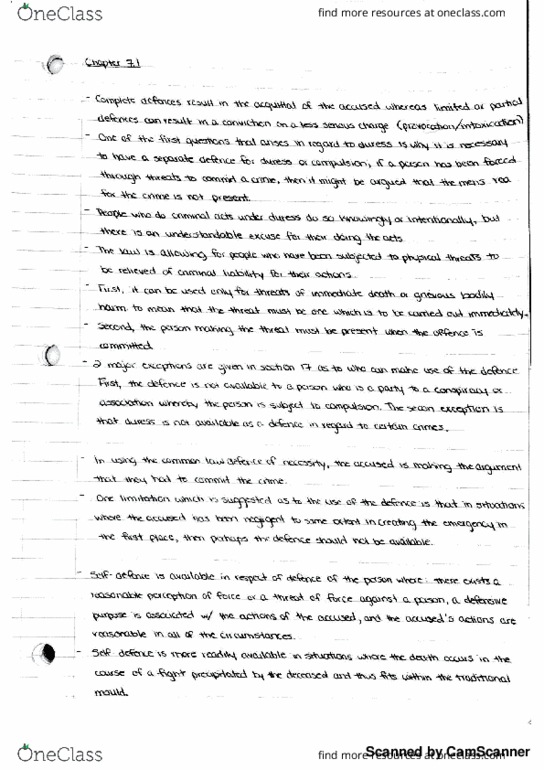 OneClass
find more resources at oneclass.com
Chapter 7.1
- Complete defences result in the acquittal of the accused whereas limited or partial
defences can result in a conviction on a less serious charge (provocation/intoxication)
- One of the first questions that arises in regard to duress is why it is necessary
to have a separate defence for duress or compulsion, if a person has been forced
through threats to commit a crime, then it might be argued that the mens rea
for the crime is not present.
- People who do criminal acts under duress do so knowingly or intentionally, but
there is an understandable excuse for their doing the acts
- The law is allowing for people who have been subjected to physical threats to
be relieved of criminal liability for their actions.
- First, it can be used only for threats of immediate death or grievous bodily
harm to mean that the threat must be one which is to be carried out immediately.
- Second, the person making the threat must be present when the offence is
committed.
- 2 major exceptions are given in section 17 as to who can make use of the defence
First, the defence is not available to a person who is a party to a conspiracy or
association whereby the person is subject to compulsion. The secon exception is
that duress is not available as a defence in regard to certain crimes.
- In using the common law defence of necessity, the accused is making the argument
that they had to commit the crime.
- One limitation which is suggested as to the use of the defence is that in situations
where the accused has been negligent to some extent in creating the emergency in
the first place, then perhaps the defence should not be available.
- Self-defence is available in respect of defence of the person where: there exists a
reasonable perception of force or a threat of force against a person, a defensive
purpose is associated w/ the actions of the accused, and the accused's actions are
reasonable in all of the circumstances.
- Self defence is more readily available in situations where the death occurs in the
course of a fight precipitated by the deceased and thus fits within the traditional
mould.
OneClass
find more resources at oneclass.com
Scanned by CamScanner